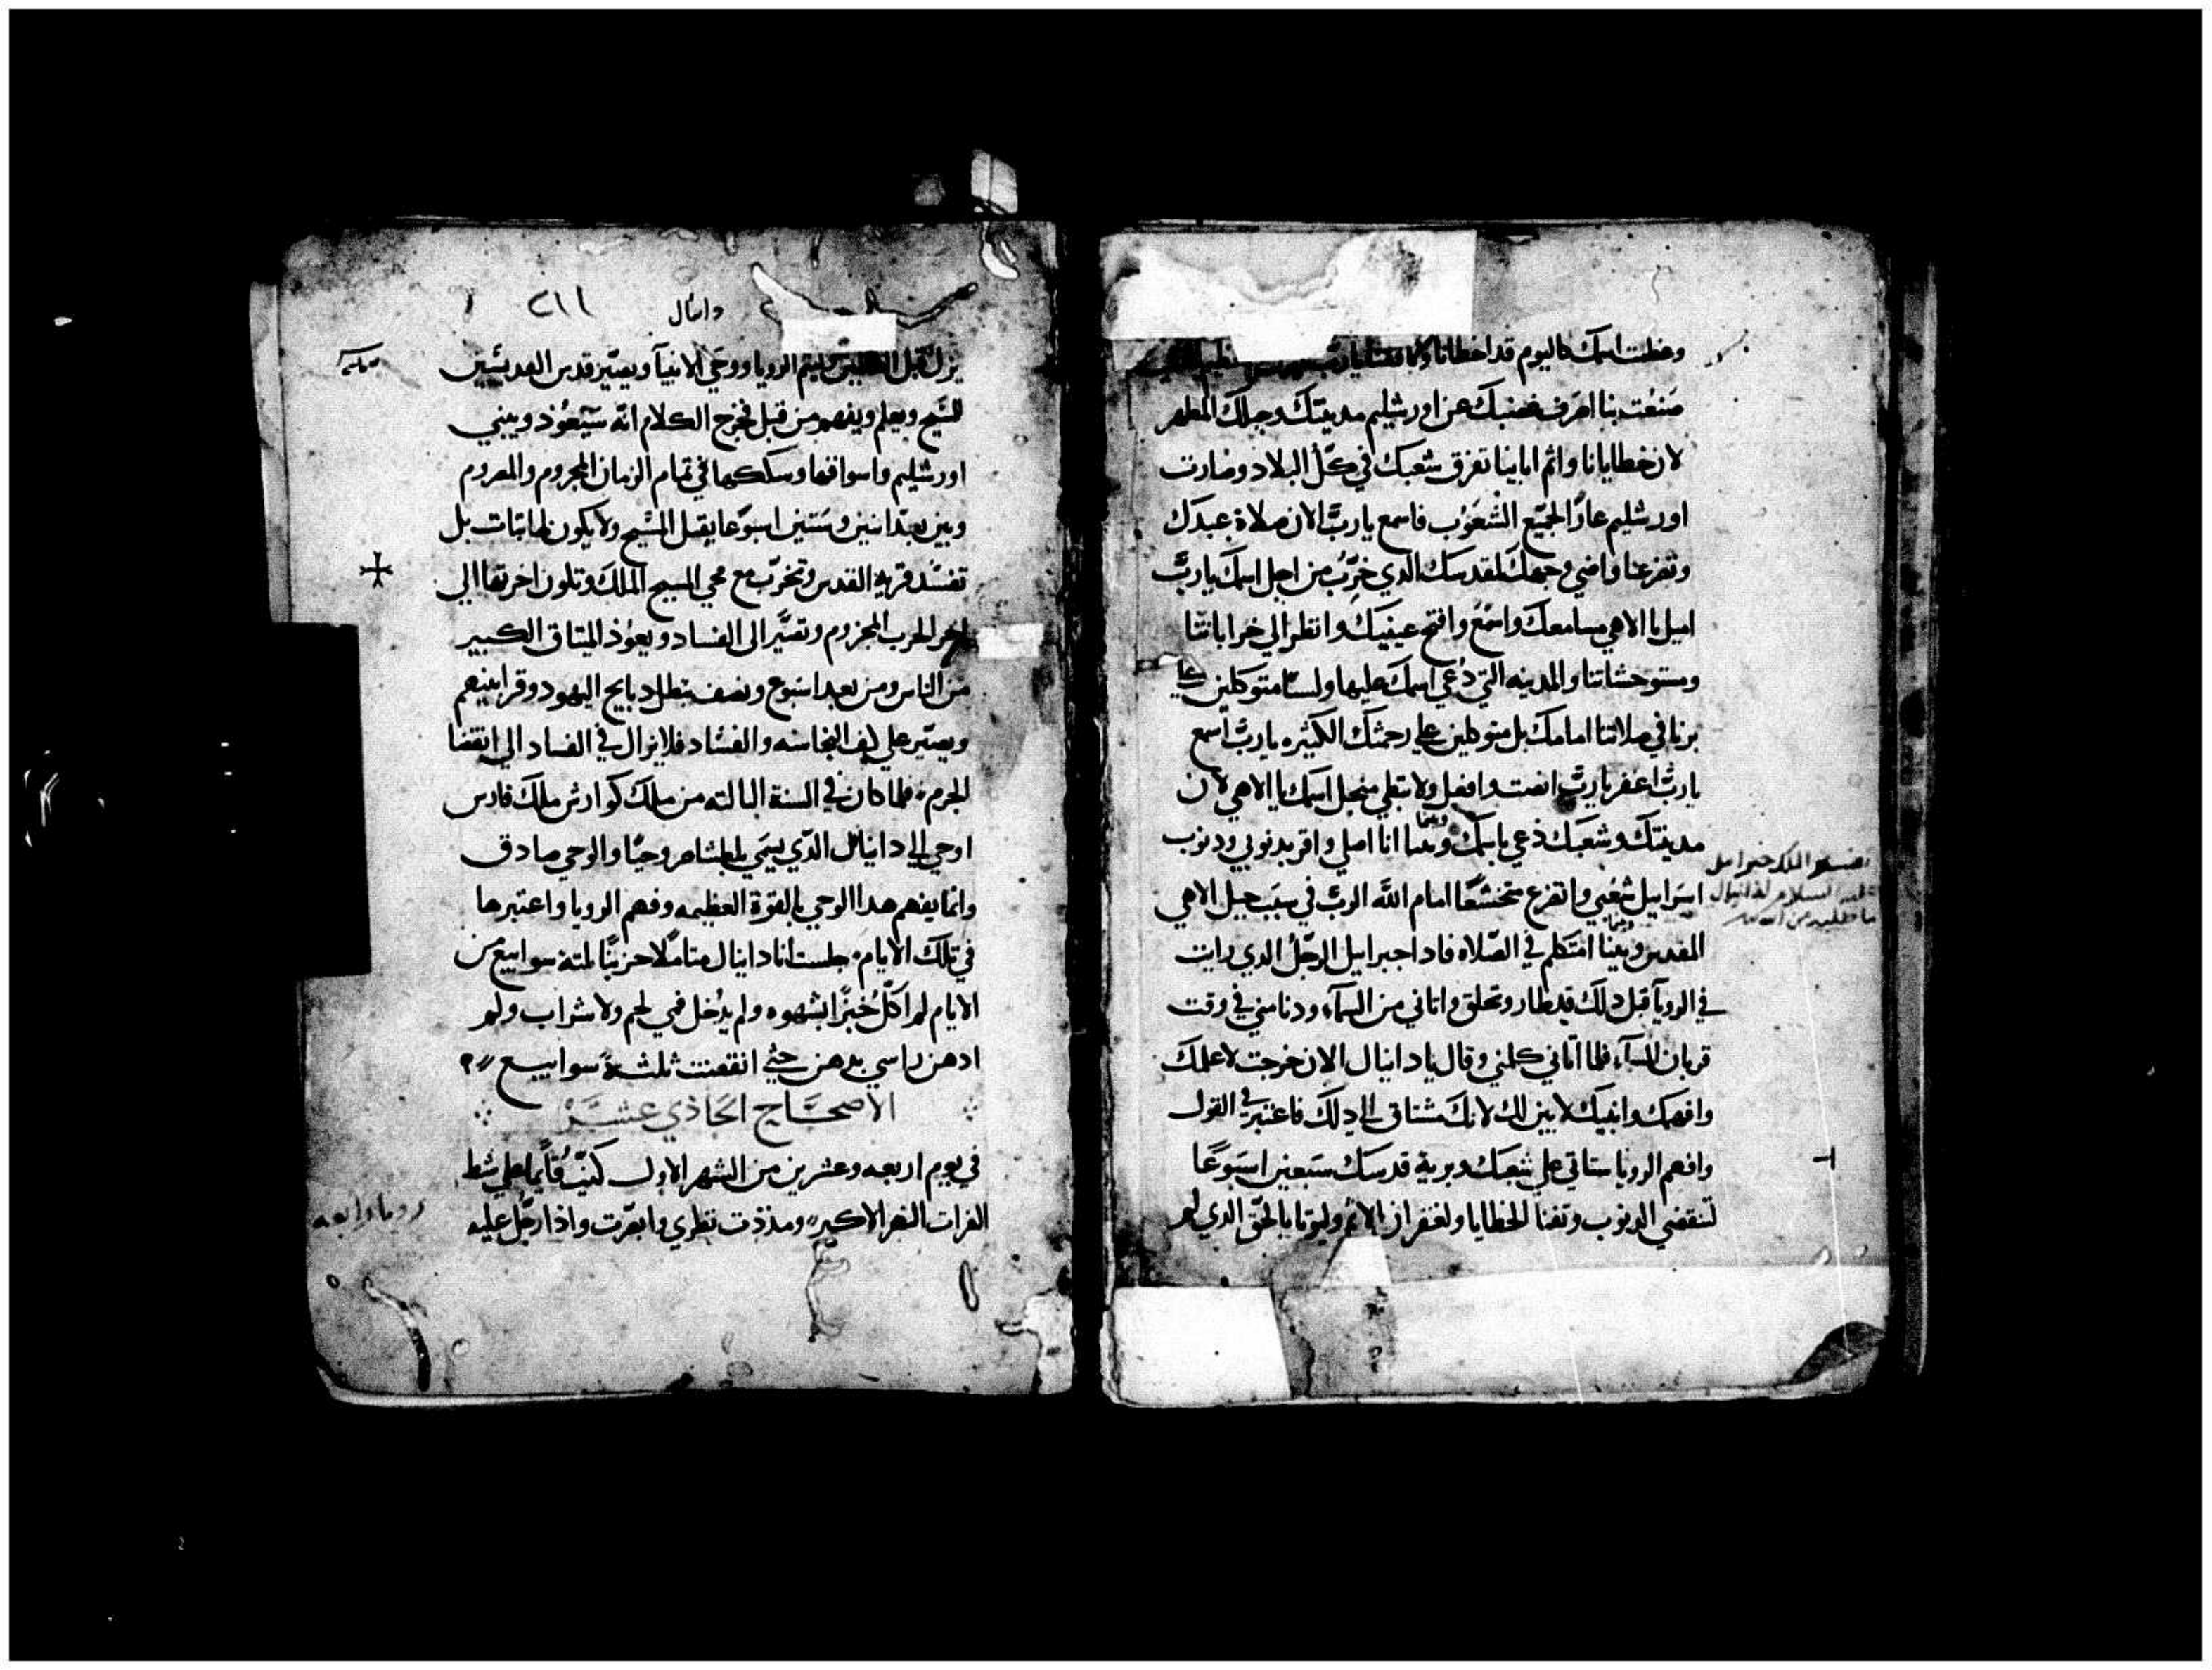 وحظت اسمك كاليوم قد اخطانا
صنعت بنا اصرف غضبك عن اورشليم مدينتك وجبلك المطهر
لان خطايانا واثم ابائنا تفرق شعبك في كل البلاد وصارت
اورشليم عارًا لجميع الشعوب فاسمع يا ربّ الان صلاة عبدك
وتضرعنا واضي وجهك لمقدسك الدي خرّب من اجل اسمك يا ربّ
اميل يا الاهي مسامعك واسمع وافتح عينيك وانظر الي خراباتنا
ومستوحشاتنا والمدينه التي دُعي اسمك عليها ولسنا متوكلين علي
برنا في صلاتنا امامك بل متوكلين علي رحمتك الكثيره يا ربّ اسمع
يا ربّ اغفر يا ربّ انصت وافعل ولا تبطي منجل اسمك يا الاهي لان
مدينتك وشعبك دعي باسمك وبينما انا اصلي واقر بدنوبي ودنوب
اسراييل شعبي واتضرع متخشعًا امام الله الربّ في سبب جبل الاهي
المقدس وبينما اتكلم في الصّلاه فادا جبراييل الرّجل الدي رايت
في الرويا قبل دلك قد طار وتحلق واتاني من السمآء ودنا مني في وقت
قربان المسآء فلما اتاني كلمني وقال يا دانيال الان خرجت لاعلمك
وافهمك وانبيك لابين لك لانك مشتاق الي دلك فاعتبر في القول
وافهم الرويا ستاتي علي شعبك وبرية قدسك سبعين اسبوعًا
لتنقضي الدنوب وتفنا الخطايا ولغفران الاثم وليوتا بالحق الدي لم
جبراييل
السلام لدانيال
دانيال
٢١١
يزل قبل ليتم الرويا ووحي الانبيآ ويصيّر قدس القديسين
للمسيح ويعلم ويفهم من قبل مخرج الكلام انّه سيعود ويبني
اورشليم واسواقها وسككها في تمام الزمان المجروم والمصروم
ومن بعد اتنين وستين اسبوعا يقتل المسيح ولا يكون لها تبات بل
تفسد قرية القدس وتخرّب مع مجي المسيح الملك وتكون اخرتها الي
اخر الحرب المجزوم وتصيّر الي الفساد ويعود الميتاق الكبير
من الناس ومن بعد اسبوع ونصف تبطل دبايح اليهود وقرابينهم
ويصيّر علي كنف النجاسه والفساد فلا يزال في الفساد الي انقضا
الجرم فلما كان في السنة التالته من ملك كوارش ملك فارس
اوحي الي دانيال الدّي يسمي بلطشاصر وحيًا والوحي صادق
وانما يفهم هدا الوحي بالقوة العظيمه وفهم الرويا واعتبرها
في تلك الايام جلست انا دانيال متاملًا حزينًا تلتة سوابيع من
الايام لم اكل خبزًا بشهوه ولم يدخل فمي لحم ولا شراب ولم
ادهن راسي بدهن حتي انقضت ثلثة سوابيع
الاصحاح الحادي عشر
في يوم اربعه وعشرين من الشهر الاول كنت قايما علي شط
الفرات النهر الاكبر ومددت نظري وابصرت واذا رجل عليه
رويا رابعه